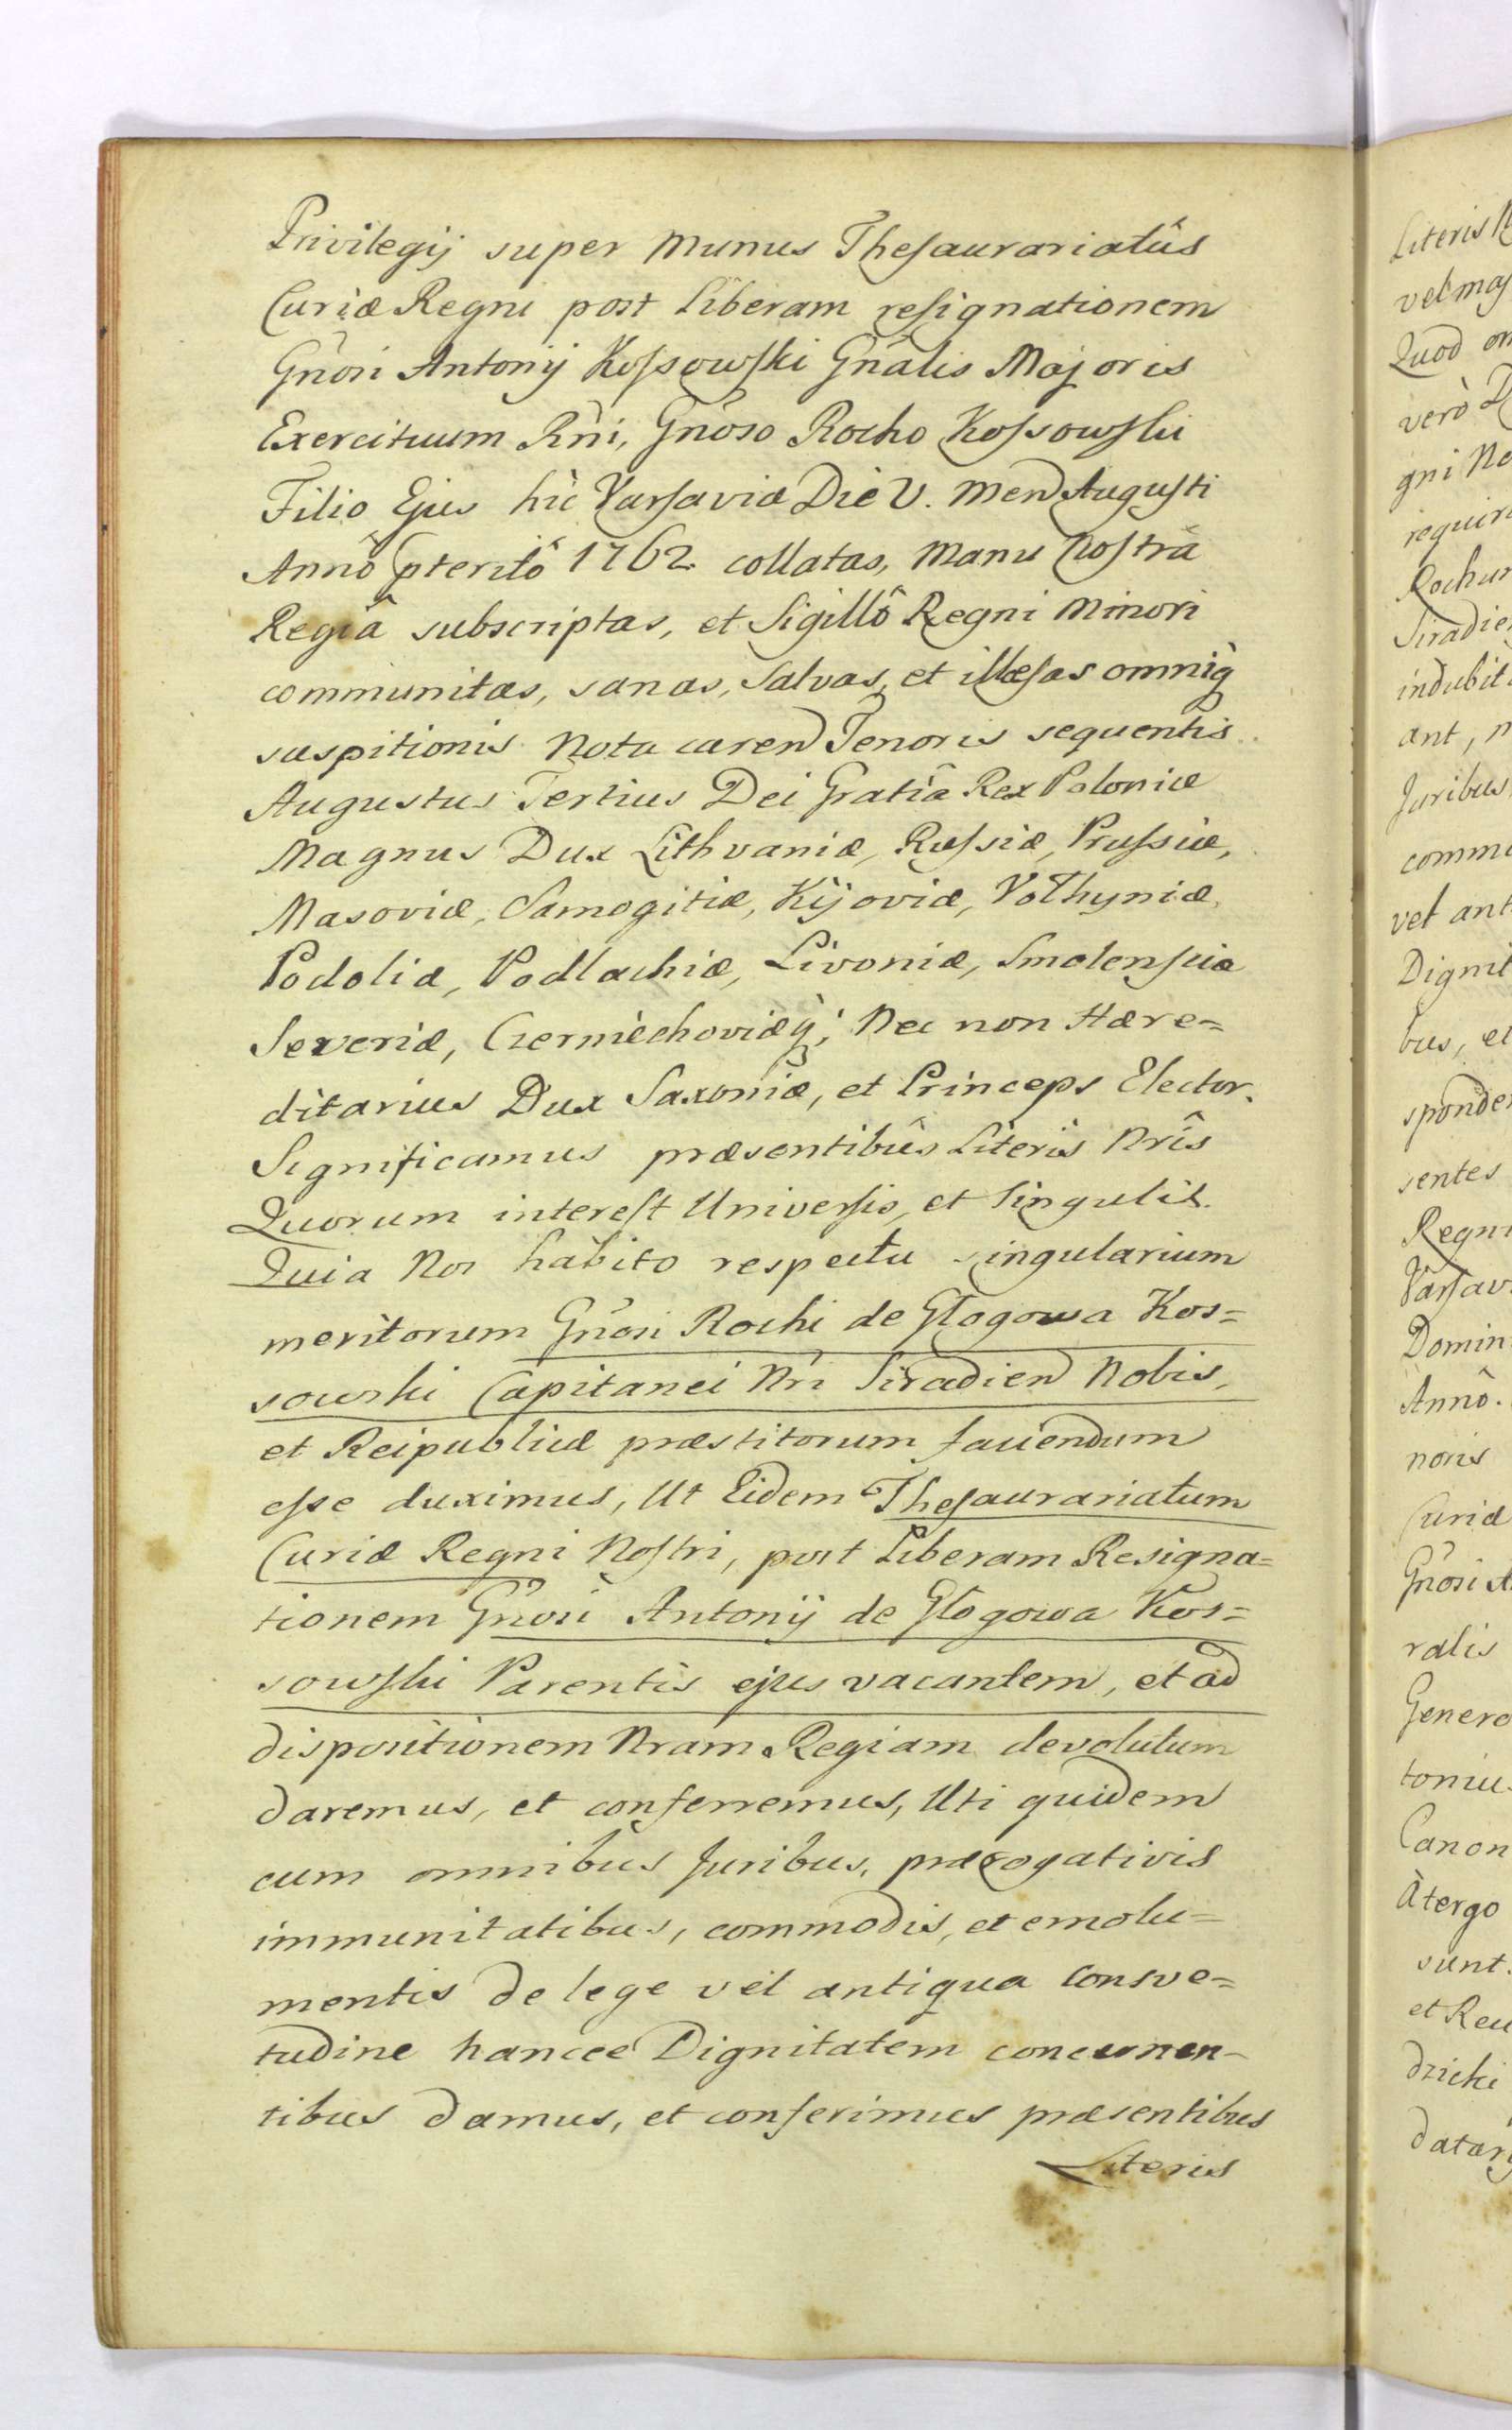 Privilegij super Munus Thesaurariatûs
Curiæ Regni post Liberam resignationem
Gñosi Antonij Kossowski Gñalis Majoris
Exercituum Rñi, Gñoso Rocho Kossowski
Filio Ejus hìc Varsaviæ Die V. Men Augusti
Annô pteritô 1762. collatas, Manu Nostrâ
Regiâ subscriptas, et Sigillô Regni Minori
communitas, sanas, Salvas, et illæsas omniq
suspitionis Nota caren Tenoris sequentis
Augustus Tertius Dei Gratiâ Rex Poloniæ
Magnus Dux Lithvaniæ, Russiæ, Prussiæ,
Masoviæ, Samogitiæ, Kijoviæ, Volhyniæ,
Podoliæ, Podlachiæ, Livoniæ, Smolensciæ
Severiæ, Czerniechoviæq; Nec non Hære=
ditarius Dux Saxoniæ, et Princeps Elector.
Significamus præsentibûs Literis Nrîs
Quorum interest Universis, et Singulis.
Quia Nos habito respectu singularium
meritorum Gñosi Rochi de Głogowa Kos=
sowski Capitanei Nri Siradien Nobis,
et Reipublicæ præstitorum faciendum
esse duximus, Ut Eidem Thesaurariatum
Curiæ Regni Nostri, post Liberam Resigna=
tionem Gñosi Antonij de Głogowa Kos=
sowski Parentis ejus vacantem, et ad
dispositionem Nram Regiam devolutum
daremus, et conferremus, Uti quidem
cum omnibus Juribus, prærogativis
immunitatibus, commodis, et emolu=
mentis de lege vel antiqua Consve=
tudine hancce Dignitatem concernen-
tibus damus, et conferimus præsentibus
Literis
Literis
Quod
verò
gni
Rochum
indubit
ant,
Juribus
vel ant
Dignit
bus, et
sponde
sentes
Regni
Varsav
Domin
Annô.
noris
Curiæ
Gñosi A
ralis
Genero
Canon
Àtergo
sunt.
dzicki